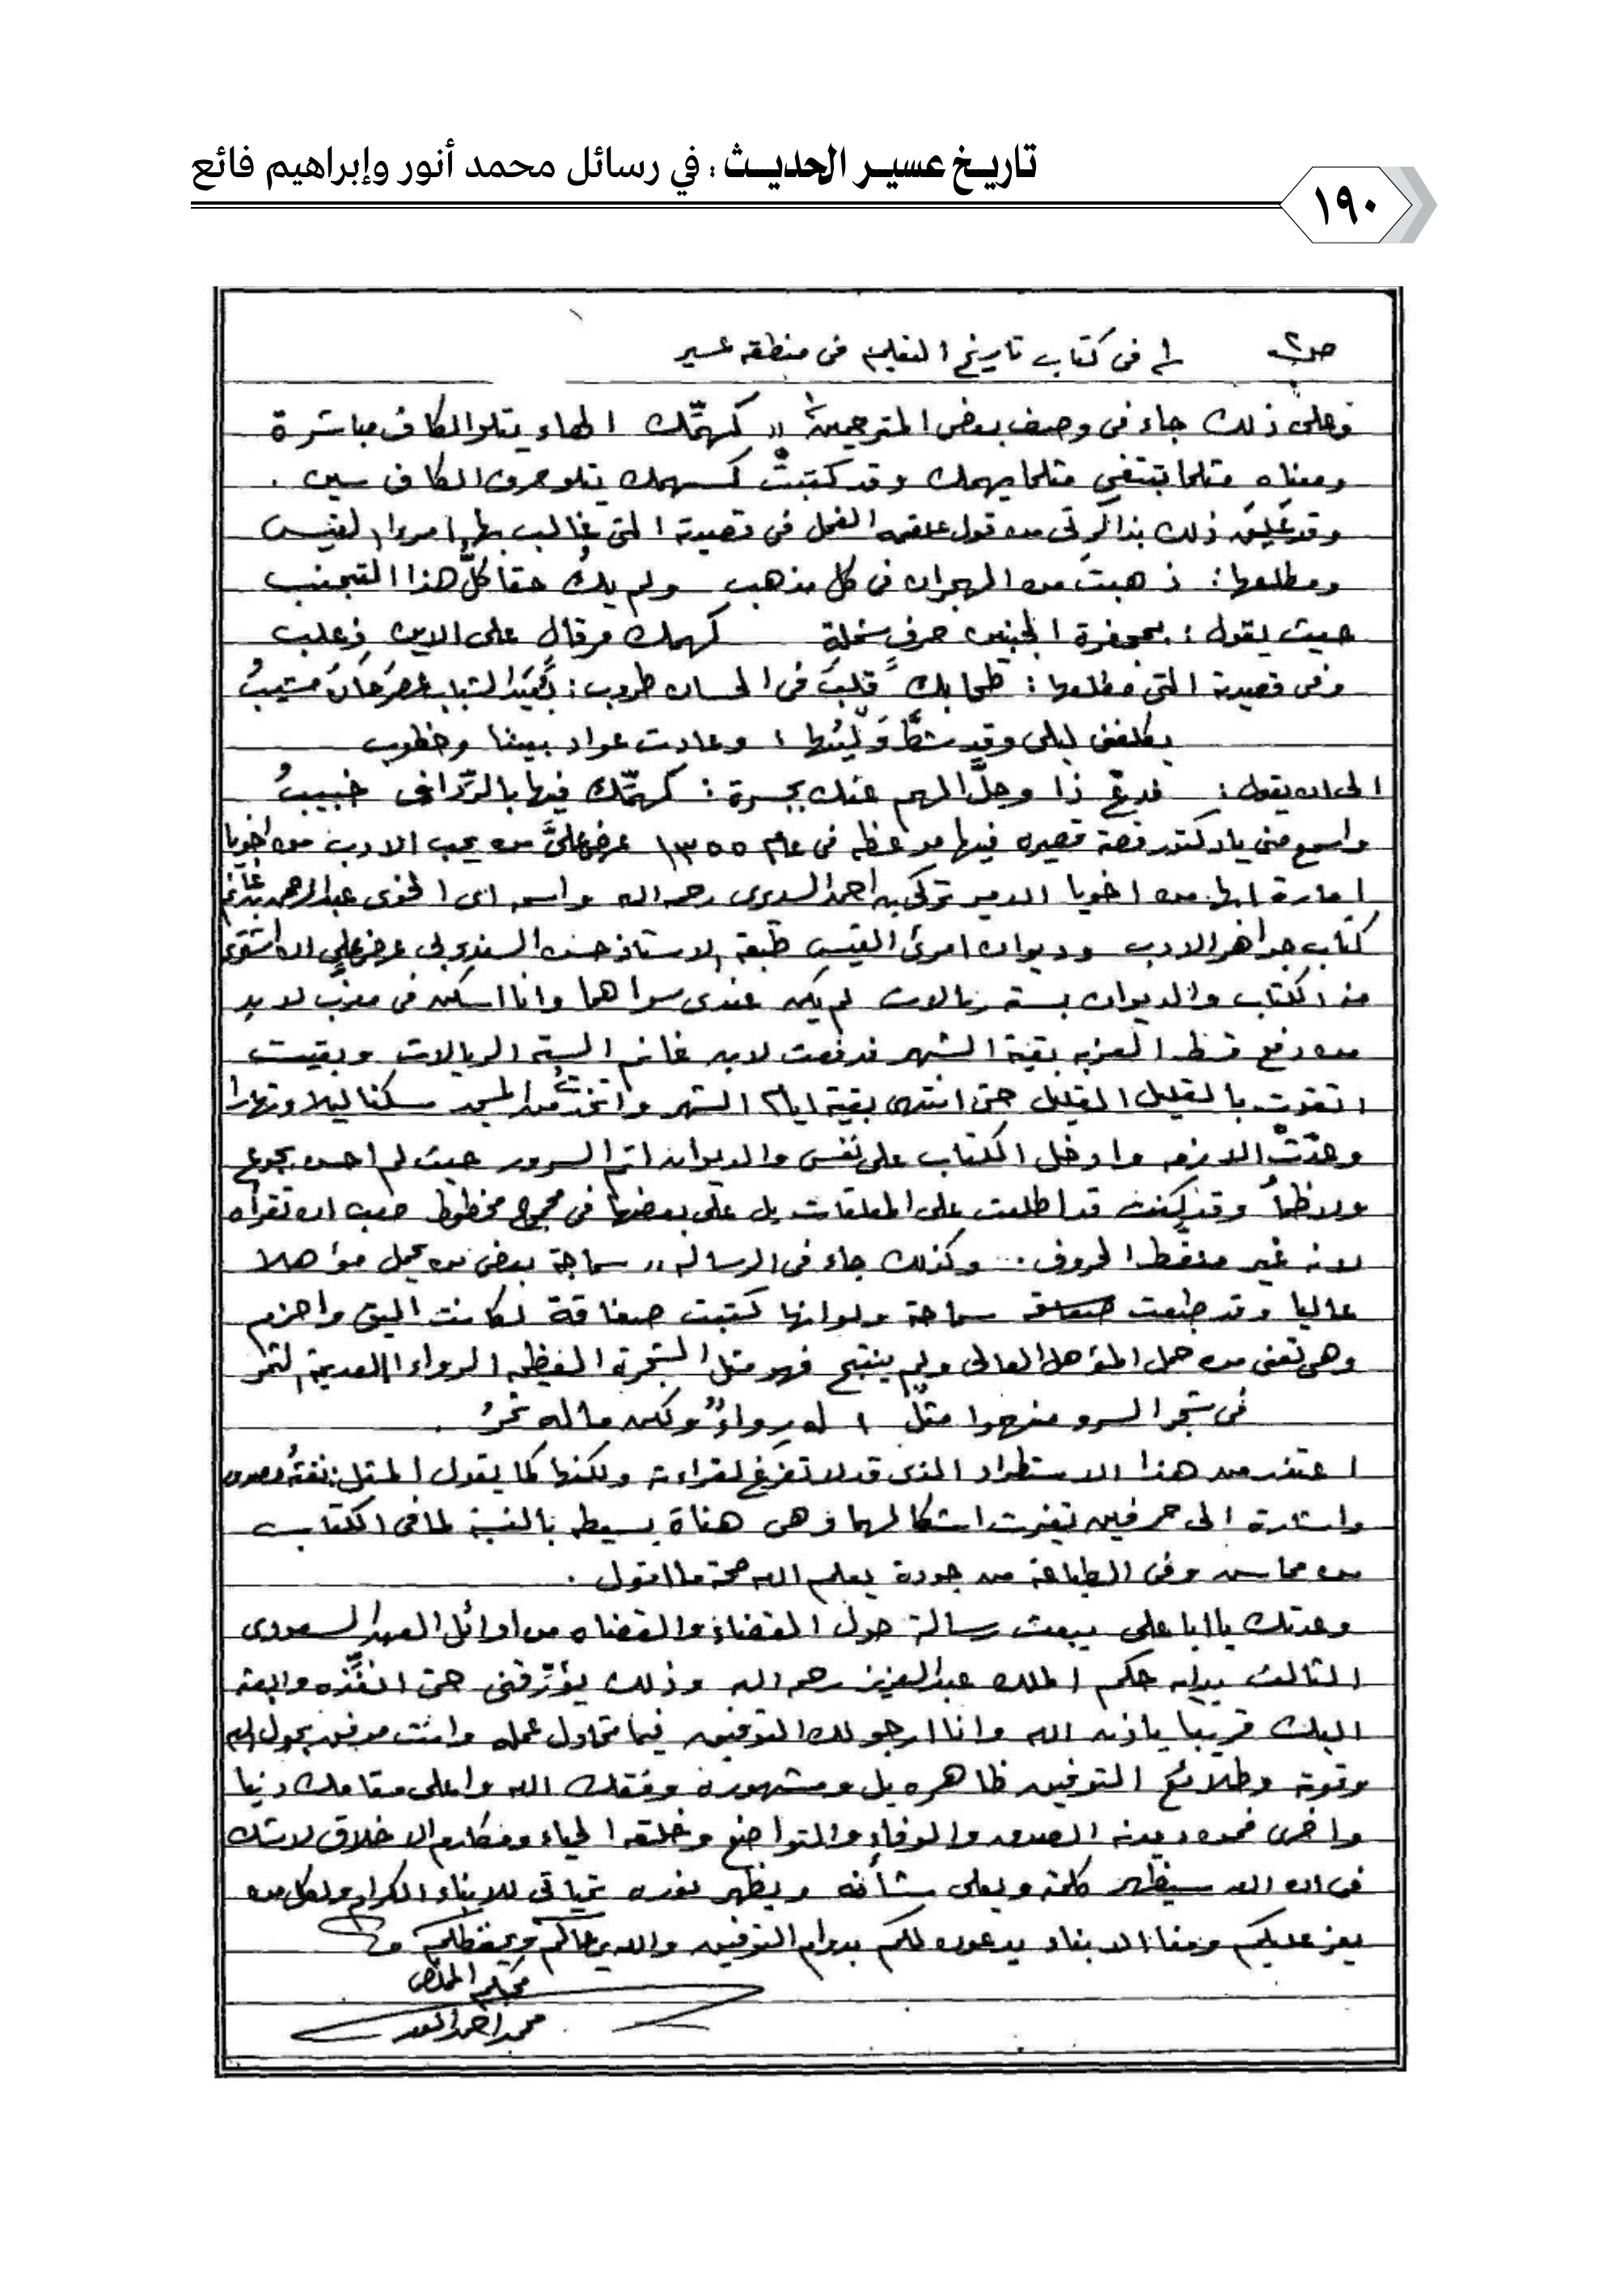 تاريخ عسير الحديث : في رسائل محمد أنور وإبراهيم فائع
١٩٠
ص٢ ١/ فى كتاب تاريخ التعليم فى منطقه عسير
وعلى ذلك جاء فى وصف بعض المترجمين١ " كهمِّك الهاء يتلو الكاف مباشرة
ومعناه مثلما تبتغى مثلما يهمك وقد كتبت كسهمك يتلو حرف الكاف سين .
وقد عَلِق ذلك بذاكرتى من قول علقمه الفحل فى قصيدته التى غالب بها امروا القيس
ومطلعها : ذهبتَ من الهجران فى كل مذهب ولم يكُ حقا كلُّ هذا التجنب
حيث يقول : بمجفرة الجنبين حرفٍ شملةٍ كهمك مرقال على الاين ذعلب
وفى قصيدته التى مطلعها : طحا بك قلبٌ فى الحسان طروب : بُعَيْدَ الشباب عصرَ حانَ مشيبُ
يكلفنى ليلى وقد شطَّ وَلْيُها : وعادت عواد بيننا وخطوب
الى ان يقول : فدعْ ذا وحلَّ الهم عنك بجسرة : كهمِّك فيها بالرِّدافى خبيبُ
واسمع منى يا دكتور قصة قصيره فيها موعظه فى عام ١٣٥٥ عرض علىَّ من يحب الادب من اخويا
امارة ابها من اخويا الامير تركى بن احمد السديرى رحمه الله واسم اى الخوى عبدالرحمن بن غانم
كتاب جواهر الادب وديوان امرئ القيس طبعة الاستاذ حسن السندوبى عرض على ان اشترى
منه الكتاب والديوان بسته ريالات لم يكن عندى سواها وانا اسكن فى معزب لابد
من دفع قسط العزبه بقية الشهر فدفعت لابن غانم الستة الريالات وبقيت
اتقوت بالقليل القليل حتى انتهى بقية ايام الشهر واتخذتُ من المسجد مسكنا ليلا ونهارا
وهدّتْ الازمه وادخل الكتاب على نفسى والديوان اتم السرور حيث لم احس بجوع
ولا ظمأ وقد كنت قد اطلعت على المعلقات بل على بعضها فى مجموع مخطوط صعب ان تقرأه
لانه غير منقّط الحروف .. وكذلك جاء فى الرساله " سماجة بعض من يحمل مؤهلا
عاليا وقد طبعت سماحة ولو انها كتبت صفاقة لكانت اليق واحزم
وهى تعنى من حمل المؤهل العالى ولم ينتج فهو مثل الشجرة الغيظه الرواء العديمة الثمر
فى شجر السرو منهموا مثلٌ : له رواءٌ ولكن ماله ثمرُ .
اعتذر من هذا الاستطراد الذى قد لا تفرغ لقراءته ولكنها كما يقول المثل : نفثة مصدور
واشارة الى حرفين تغيرت اشكالهما وهى هناة بسيطه بالنسبة لما فى الكتاب
من محاسن وفى الطباعة من جودة يعلم الله صحة ما اقول .
وعدتك يا ابا على ببعث رسالة حول القضاء والقضاه من اوائل العهد السعودى
الثالث بداية حكم الملك عبدالعزيز رحمه الله وذلك يؤرقنى حتى انفّذه وابعثه
اليك قريبا باذن الله وانا ارجو لك التوفيق فيما تحاول عمله وانت موفق بحول الله
وقوته وطلائع التوفيق ظاهره بل ومشهوره وفقك الله واعلى مقامك دنيا
واخرى فمن ديدنه الصدق والوفاء والتواضع وخلقه الحياء ومكارم الاخلاق لاشك
فى ان الله سيظهر كلمته ويعلى شأنه ويظهر نوره تحياتى للابناء الكرام ولكل من
يعز عليكم ومنا الابناء يدعون لكم بدوام التوفيق والله يرعاكم ويحفظكم
محبكم المخلص
محمد احمد انور